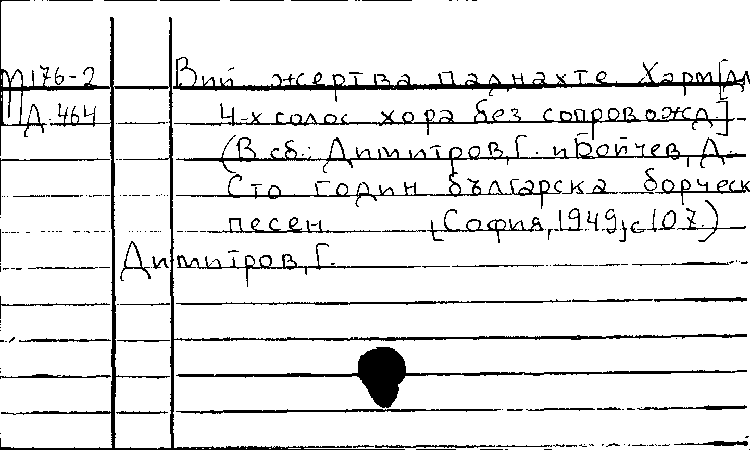 М176-2 Вий жертва паднахте. Харм[дл
Д.464 4-х голос хора без сопровожд]
(В сб.: Димитров, Г. и Бойчев, Д.
Сто годин българска борческ
песен [София, 1949, с 107.)
Димитров, Г.